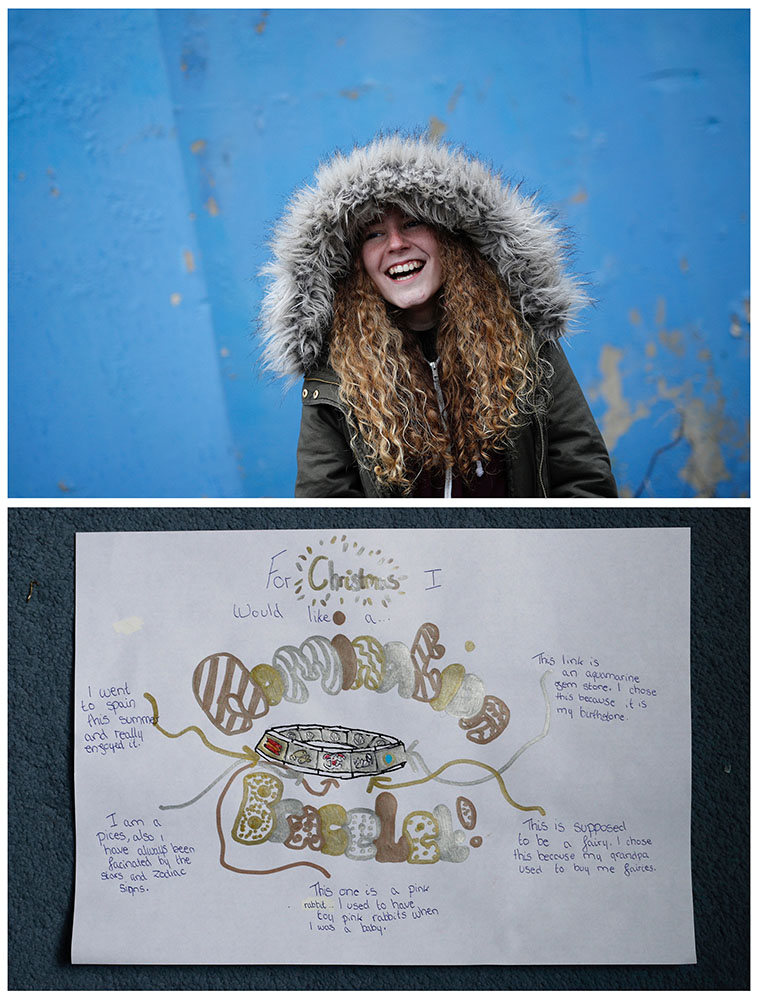 For Christmas I
Would like a...
Bracelet!
I went
to spain
this summer
and really
engoyed it.
This link is
an aquamarine
gem stone. I chose
this because it is
my birthstone.
I am a
pices, also I
have always been
facinated by the
stars and zodiac
signs.
This is supposed
to be a fairy. I chose
this because my grandpa
used to buy me fairies.
This one is a pink
rabbit.. I used to have
toy pink rabbits when
I was a baby.